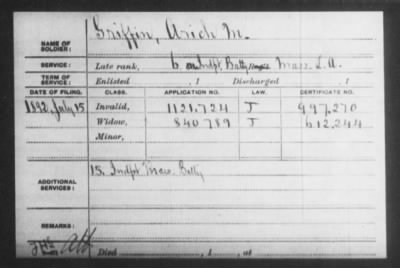 NAME OF SOLDIER: Griffin, Arich M.
SERVICE: Late rank, 6 Indpt. Batty Mass. L.A.
TERM OF SERVICE: Enlisted , 1 Discharged , 1
DATE OF FILING. CLASS. APPLICATION NO. LAW. CERTIFICATE NO.
1892, July 15 Invalid, 1121.724 J 997.270
Widow, 840789 J 612.244
Minor,
ADDITIONAL SERVICES: 15. Indpt Mass. Batty
REMARKS:
Died , 1 , at